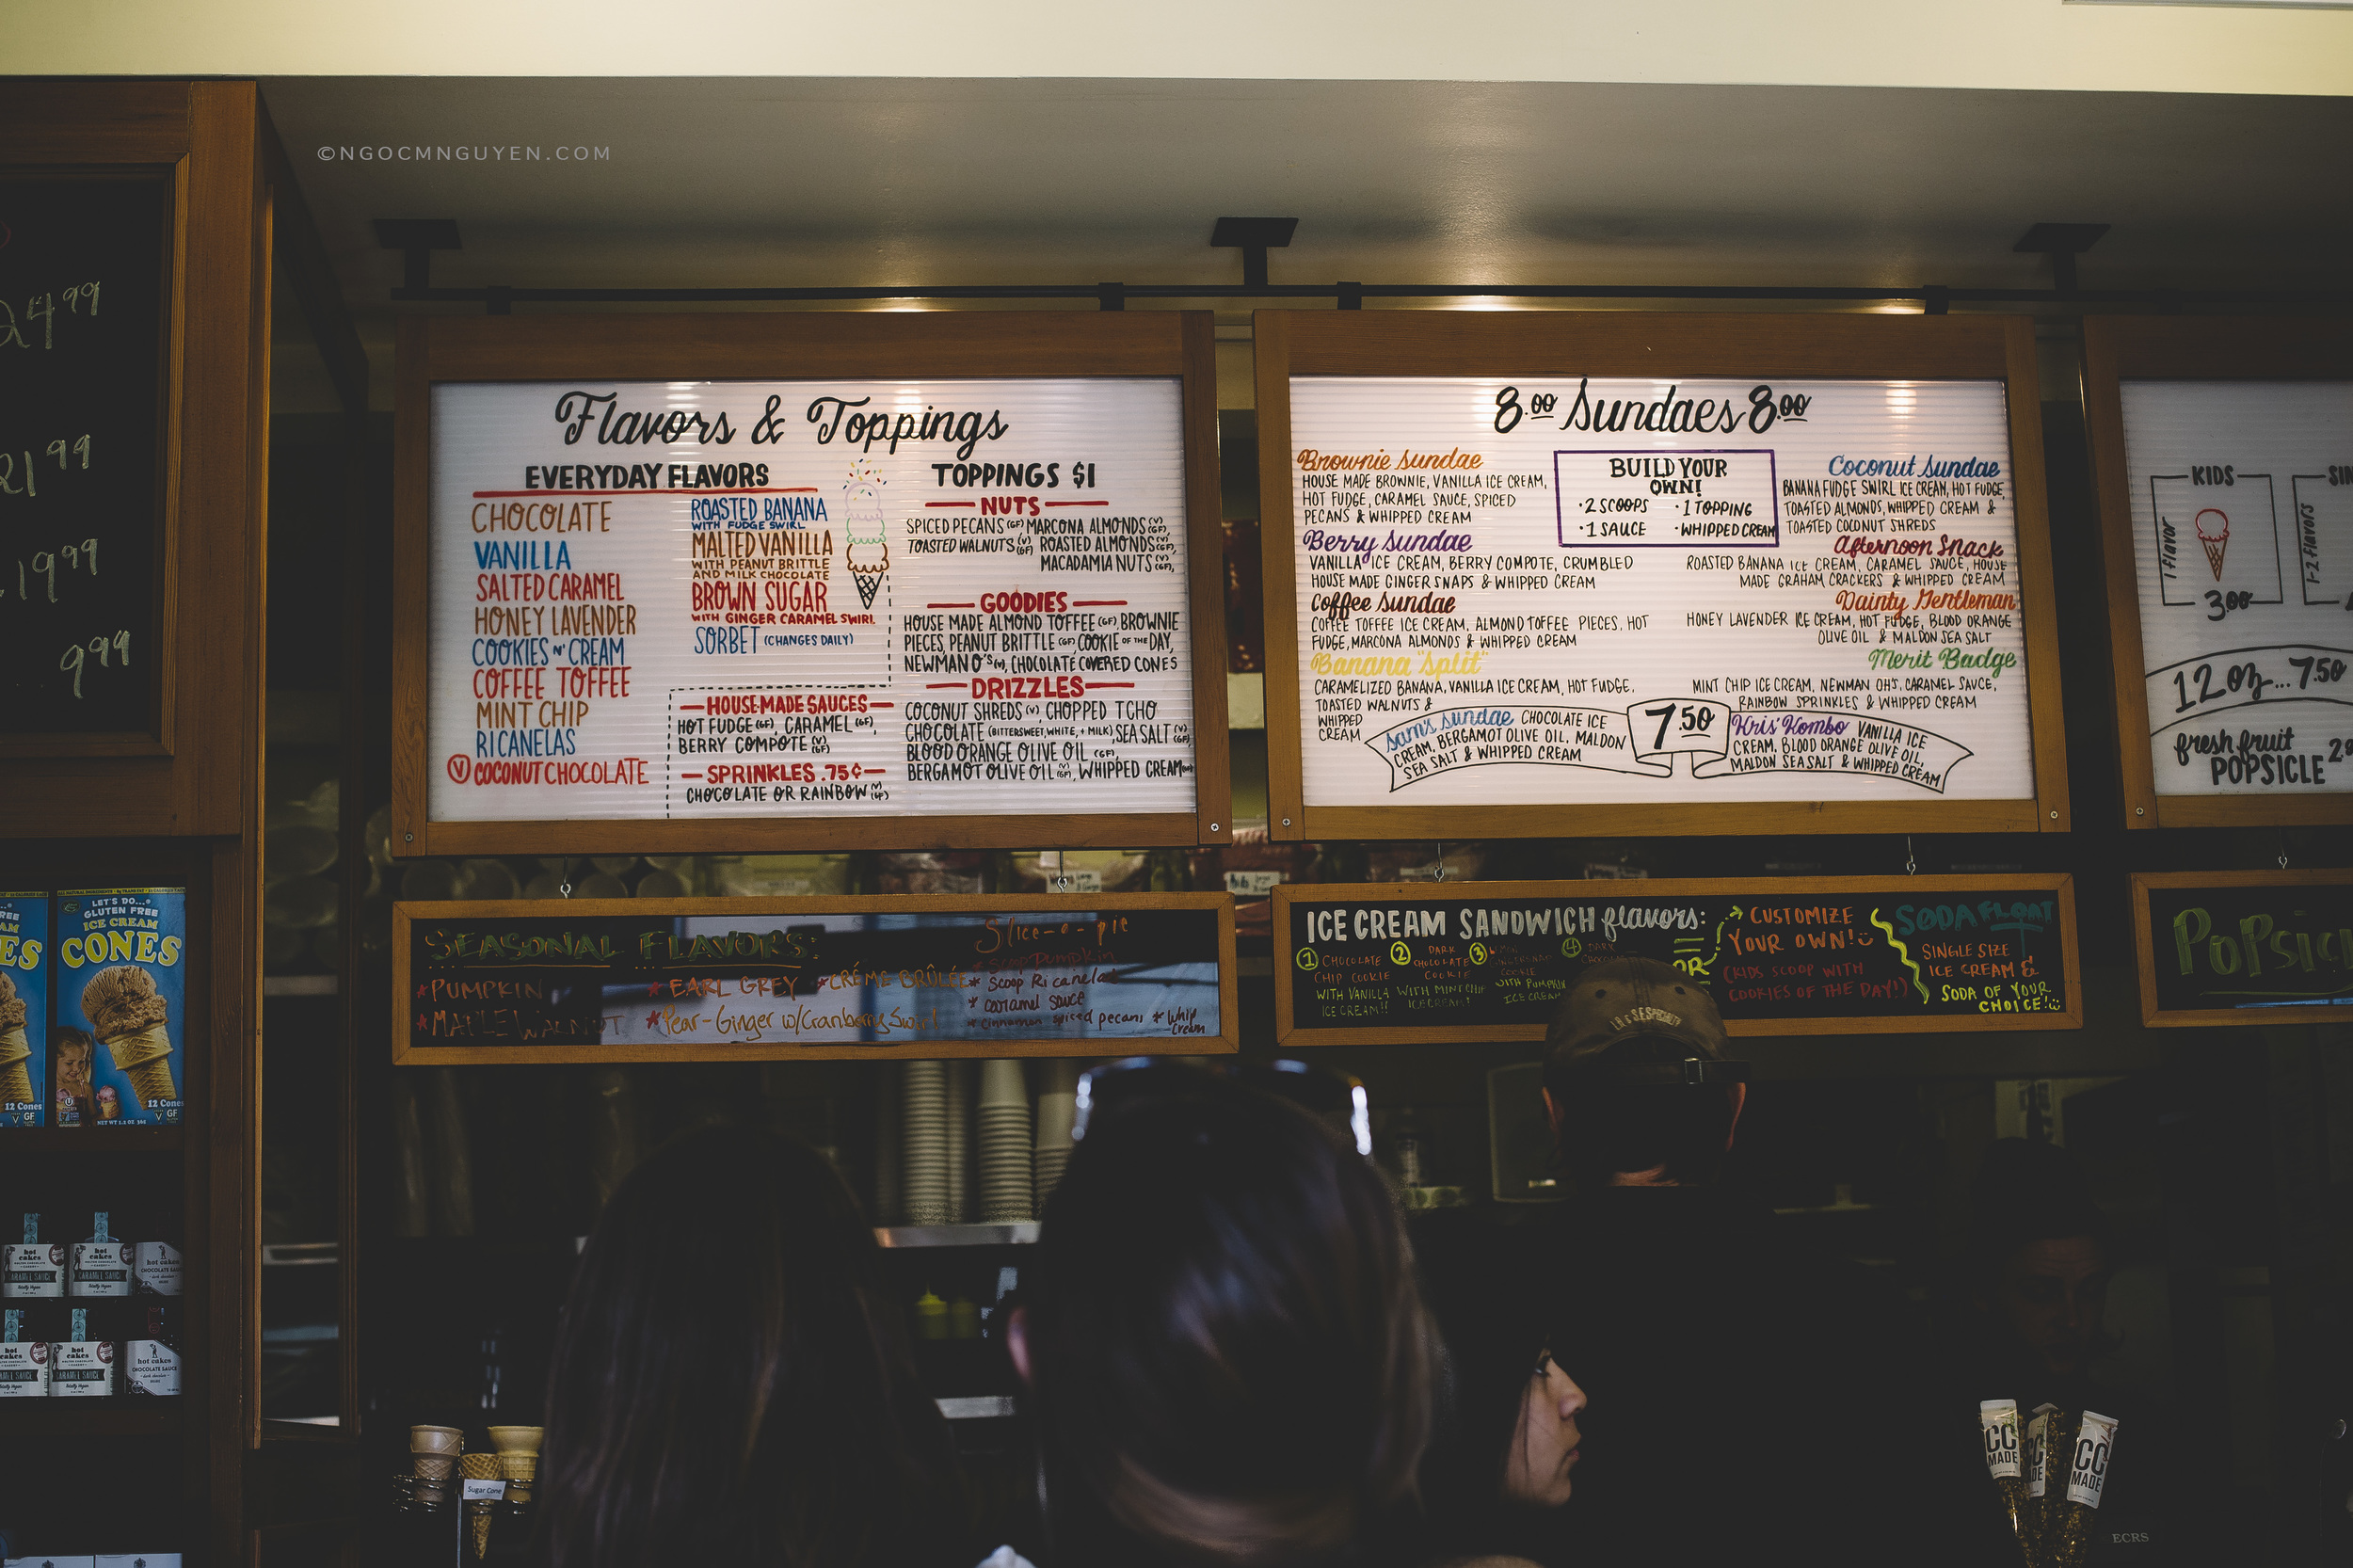 ©NGOCMNGUYEN.COM
24 99
21 99
19 99
9 99
Flavors & Toppings
EVERYDAY FLAVORS
CHOCOLATE
VANILLA
SALTED CARAMEL
HONEY LAVENDER
COOKIES N' CREAM
COFFEE TOFFEE
MINT CHIP
RICANELAS
Ⓥ COCONUT CHOCOLATE
ROASTED BANANA
WITH FUDGE SWIRL
MALTED VANILLA
WITH PEANUT BRITTLE
AND MILK CHOCOLATE
BROWN SUGAR
WITH GINGER CARAMEL SWIRL
SORBET (CHANGES DAILY)
HOUSE-MADE SAUCES
HOT FUDGE (GF), CARAMEL (GF),
BERRY COMPOTE (V) (GF)
SPRINKLES .75¢
CHOCOLATE OR RAINBOW (V) (GF)
TOPPINGS $1
NUTS
SPICED PECANS (GF) MARCONA ALMONDS (V) (GF),
TOASTED WALNUTS (V) (GF) ROASTED ALMONDS (V) (GF),
MACADAMIA NUTS (V) (GF),
GOODIES
HOUSE MADE ALMOND TOFFEE (GF), BROWNIE
PIECES, PEANUT BRITTLE (GF), COOKIE OF THE DAY,
NEWMAN O'S (V), CHOCOLATE COVERED CONES
DRIZZLES
COCONUT SHREDS (V), CHOPPED TCHO
CHOCOLATE (BITTERSWEET, WHITE, + MILK), SEA SALT (V) (GF),
BLOOD ORANGE OLIVE OIL (GF),
BERGAMOT OLIVE OIL (V) (GF), WHIPPED CREAM
8.00 Sundaes 8.00
Brownie Sundae
HOUSE MADE BROWNIE, VANILLA ICE CREAM,
HOT FUDGE, CARAMEL SAUCE, SPICED
PECANS & WHIPPED CREAM
Berry Sundae
VANILLA ICE CREAM, BERRY COMPOTE, CRUMBLED
HOUSE MADE GINGER SNAPS & WHIPPED CREAM
Coffee Sundae
COFFEE TOFFEE ICE CREAM, ALMOND TOFFEE PIECES, HOT
FUDGE, MARCONA ALMONDS & WHIPPED CREAM
Banana "Split"
CARAMELIZED BANANA, VANILLA ICE CREAM, HOT FUDGE,
TOASTED WALNUTS &
WHIPPED
CREAM
BUILD YOUR
OWN!
·2 SCOOPS ·1 TOPPING
·1 SAUCE ·WHIPPED CREAM
Coconut Sundae
BANANA FUDGE SWIRL ICE CREAM, HOT FUDGE,
TOASTED ALMONDS, WHIPPED CREAM &
TOASTED COCONUT SHREDS
Afternoon Snack
ROASTED BANANA ICE CREAM, CARAMEL SAUCE, HOUSE
MADE GRAHAM CRACKERS & WHIPPED CREAM
Dainty Gentleman
HONEY LAVENDER ICE CREAM, HOT FUDGE, BLOOD ORANGE
OLIVE OIL & MALDON SEA SALT
Merit Badge
MINT CHIP ICE CREAM, NEWMAN OH'S, CARAMEL SAUCE,
RAINBOW SPRINKLES & WHIPPED CREAM
Sam's Sundae CHOCOLATE ICE
CREAM, BERGAMOT OLIVE OIL, MALDON
SEA SALT & WHIPPED CREAM
7.50
Kris' Kombo VANILLA ICE
CREAM, BLOOD ORANGE OLIVE OIL,
MALDON SEA SALT & WHIPPED CREAM
KIDS
1 flavor
3.00
SIN
1-2 flavors
12 oz... 7.50
fresh fruit
POPSICLE
SEASONAL FLAVORS:
*PUMPKIN
*MAPLE WALNUT
*EARL GREY
*CRÉME BRÛLÉE
*Pear-Ginger w/Cranberry Swirl
Slice-o-pie
* scoop Pumpkin
* scoop Ricanelas
* caramel sauce
* cinnamon spiced pecans * whip cream
ICE CREAM SANDWICH flavors:
① CHOCOLATE
CHIP COOKIE
WITH VANILLA
ICE CREAM!!
② DARK
CHOCOLATE
COOKIE
WITH MINT CHIP
ICE CREAM!
③
COOKIE
WITH PUMPKIN
ICE CREAM
④ DARK
OR
CUSTOMIZE
YOUR OWN!
(KIDS SCOOP WITH
COOKIES OF THE DAY!)
SODA FLOAT
SINGLE SIZE
ICE CREAM &
SODA OF YOUR
CHOICE!
POPSIC
LET'S DO...
GLUTEN FREE
ICE CREAM
CONES
12 Cones
GF
12 Cones
GF
hot cakes
CARAMEL SAUCE
hot cakes
CHOCOLATE SAUCE
Sugar Cone
CC
MADE
CC
MADE
ECRS